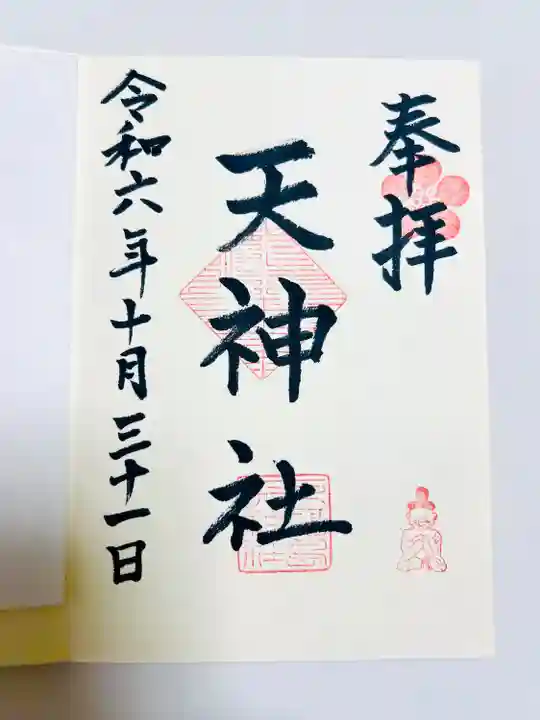 奉拝
天神社
令和六年十月三十一日